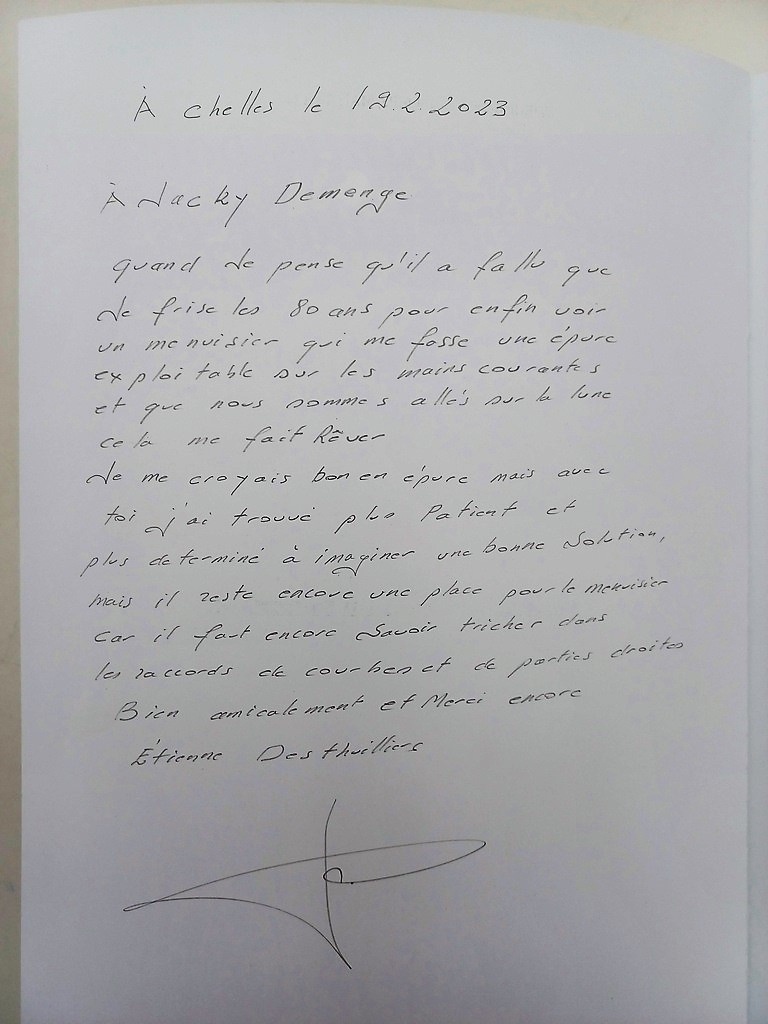 À chelles le 19.2.2023
À Jacky Demenge
quand Je pense qu'il a fallu que
Je frise les 80 ans pour enfin voir
un menuisier qui me fasse une épure
exploitable sur les mains courantes
et que nous sommes allés sur la lune
cela me fait Rêver
Je me croyais bon en épure mais avec
toi j'ai trouvé plus Patient et
plus determiné à imaginer une bonne Solution,
mais il reste encore une place pour le menuisier
car il faut encore Savoir tricher dans
les raccords de courbes et de parties droites
Bien amicalement et Merci encore
Étienne Desthuilliers